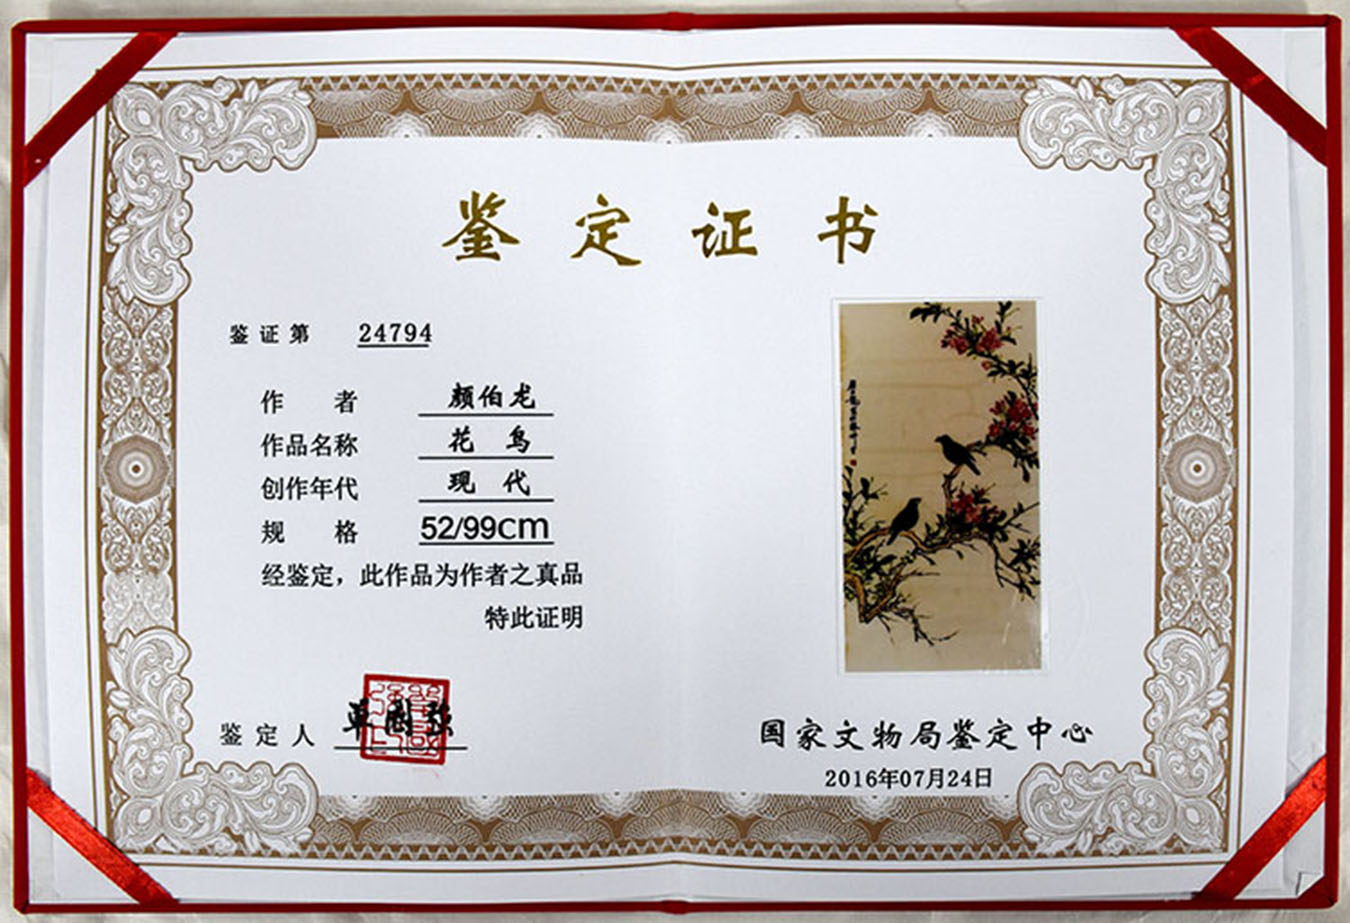 鉴定证书
鉴证第 24794
作者 颜伯龙
作品名称 花鸟
创作年代 现代
规格 52/99cm
经鉴定，此作品为作者之真品
特此证明
鉴定人 单国强
国家文物局鉴定中心
2016年07月24日